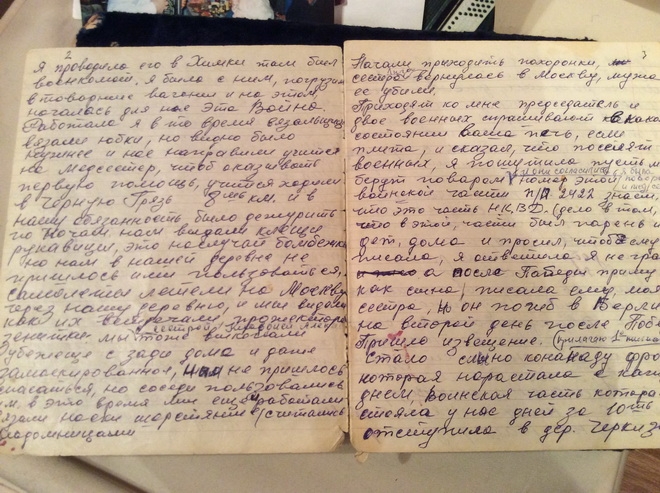 2
Я проводила его в Химки там был
военкомат. я была с ним, погрузили
в товарние вагени и на этом
началась для нас эта Война.
Работала я в то время вязальщицей
вязали юбки, но видно было
нужнее и нас направили учится
на Медсестер, чтоб оказывать
первую помощь, учится ходили
в Черную Грязь км. и в
нашу обязанность было дежурить
по ночам, нам выдали клещи
рукавици, это на случай бомбежки
но нам в нашей деревне не
пришлось ими пользоваться,
самолеты летели на Москву
через нашу деревню, и мы видели
как их встречали прожектора
зенитки мы тоже выкопали
убежище с зади дома и даже
замаскированное, нам не пришлось
спасаться, но соседи пользовались
м, в это время мы ещё работали
вязали носки шерстяные, считались
надомницами
3
Начали прыходить похоронки,
сестра вернулась в Москву, мужа
ее убили.
Приходят ко мне председатель и
двое военных спрашивают в каком
состоянии ваша печь, если
плита, и сказал, что поселят
военных, я пошутила пусть м
берут поваром, и они согласились номер этой
воинской части п/п 2422 знаем,
что это часть Н.К.В.Д. (дело в том,
что в этой, части был парень и
дет. дома и просил, чтоб ему
писала, я ответила
а после Победы приму
как сына, писала ему моя
сестра, но он погиб в Берлине
на второй день после Победы
Пришло извещение. (прилагаю
Стало слышно канонаду фро
которая нарастала с каж
днем, Воинская часть котора
стояла у нас дней за 10ть
отступила в дер. Черкиз